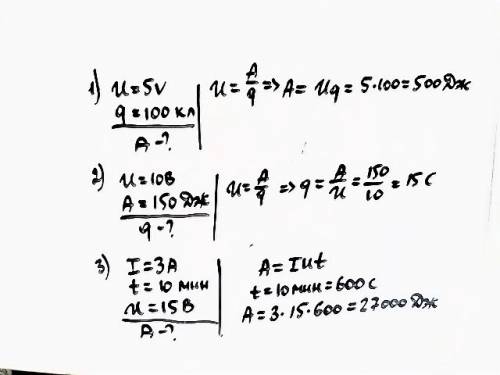 1) u=5v
q=100 кл
A-?
u=A/q=>A=uq=5·100=500 Дж
2) u=10В
A=150 Дж
q-?
u=A/q=>q=A/u=150/10=15 C
3) I=3A
t=10 мин
u=15В
A-?
A=Iut
t=10мин=600 с
A=3·15·600=27000 Дж